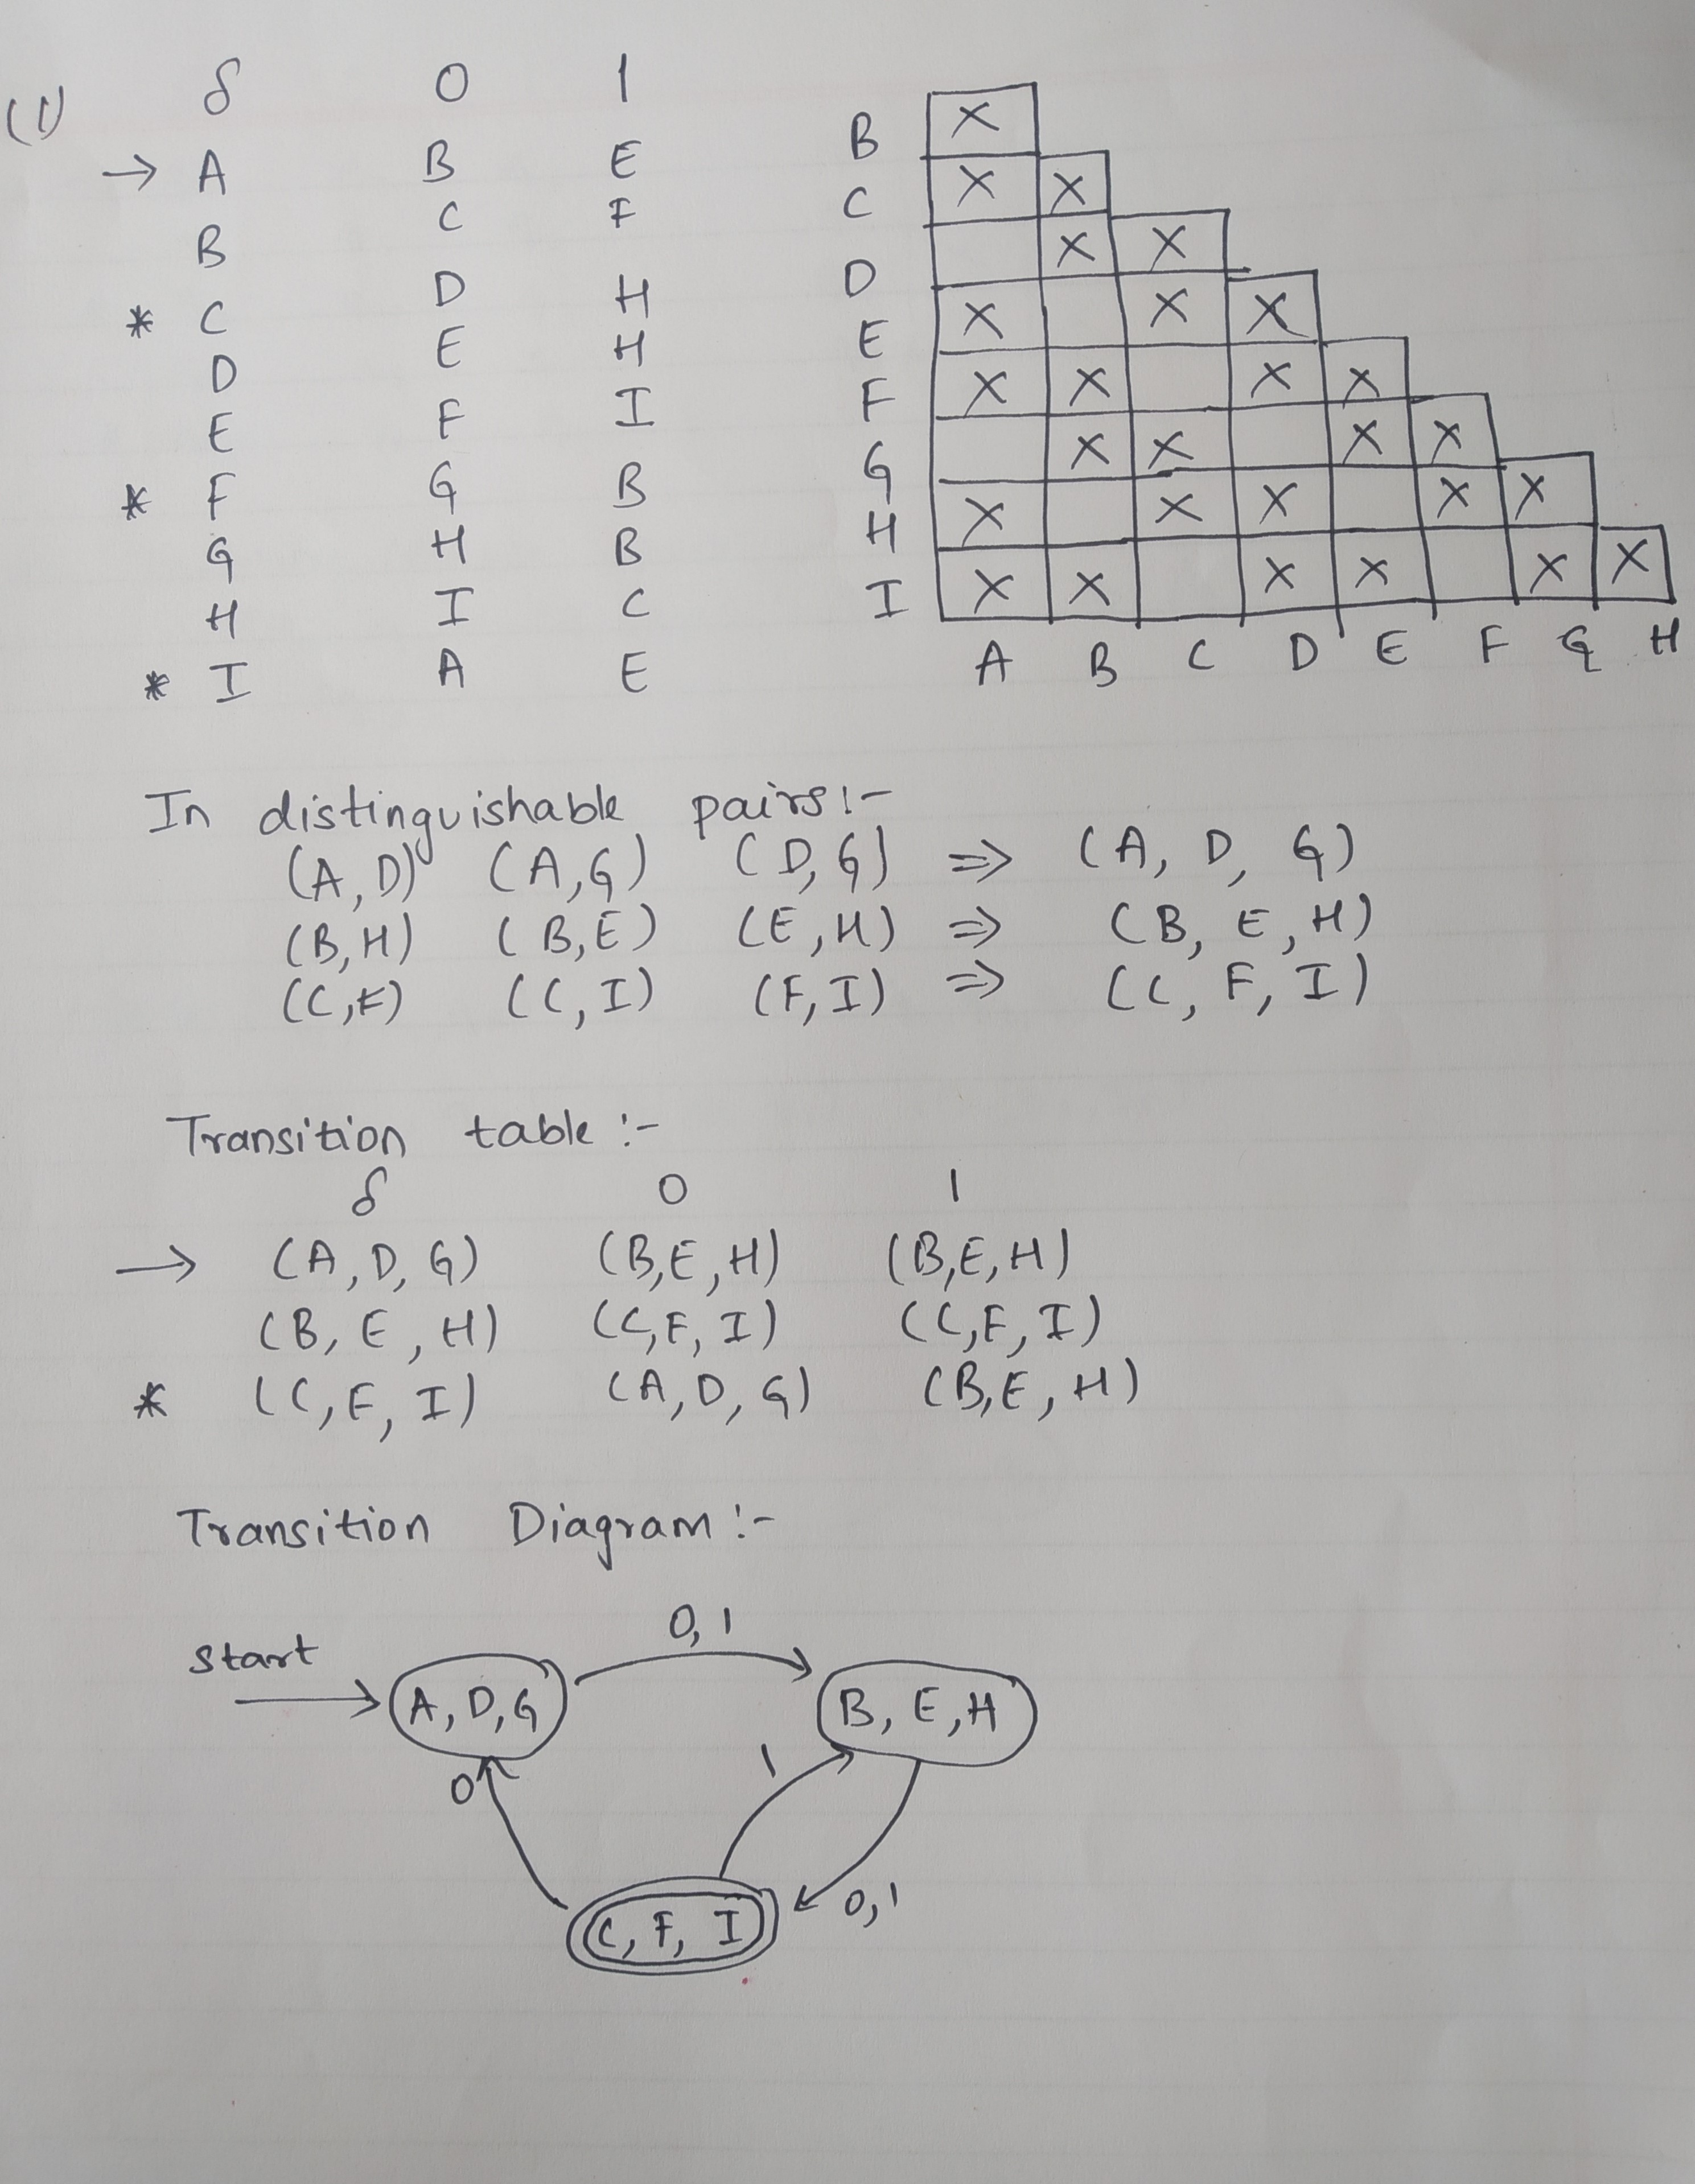 (1) δ 0 1
→ A B E
B C F
* C D H
D E H
E F I
* F G B
G H B
H I C
* I A E
B X
C X X
D X X
E X X X
F X X X X
G X X X X
H X X X X X
I X X X X X X
A B C D E F G H
In distinguishable pairs:-
(A,D) (A,G) (D,G) ⇒ (A, D, G)
(B,H) (B,E) (E,H) ⇒ (B, E, H)
(C,F) (C,I) (F,I) ⇒ (C, F, I)
Transition table :-
δ 0 1
→ (A, D, G) (B,E,H) (B,E,H)
(B, E, H) (C,F, I) (C,F, I)
* (C, F, I) (A, D, G) (B,E, H)
Transition Diagram :-
0, 1
Start
A, D, G
B, E, H
1
0
0, 1
C, F, I